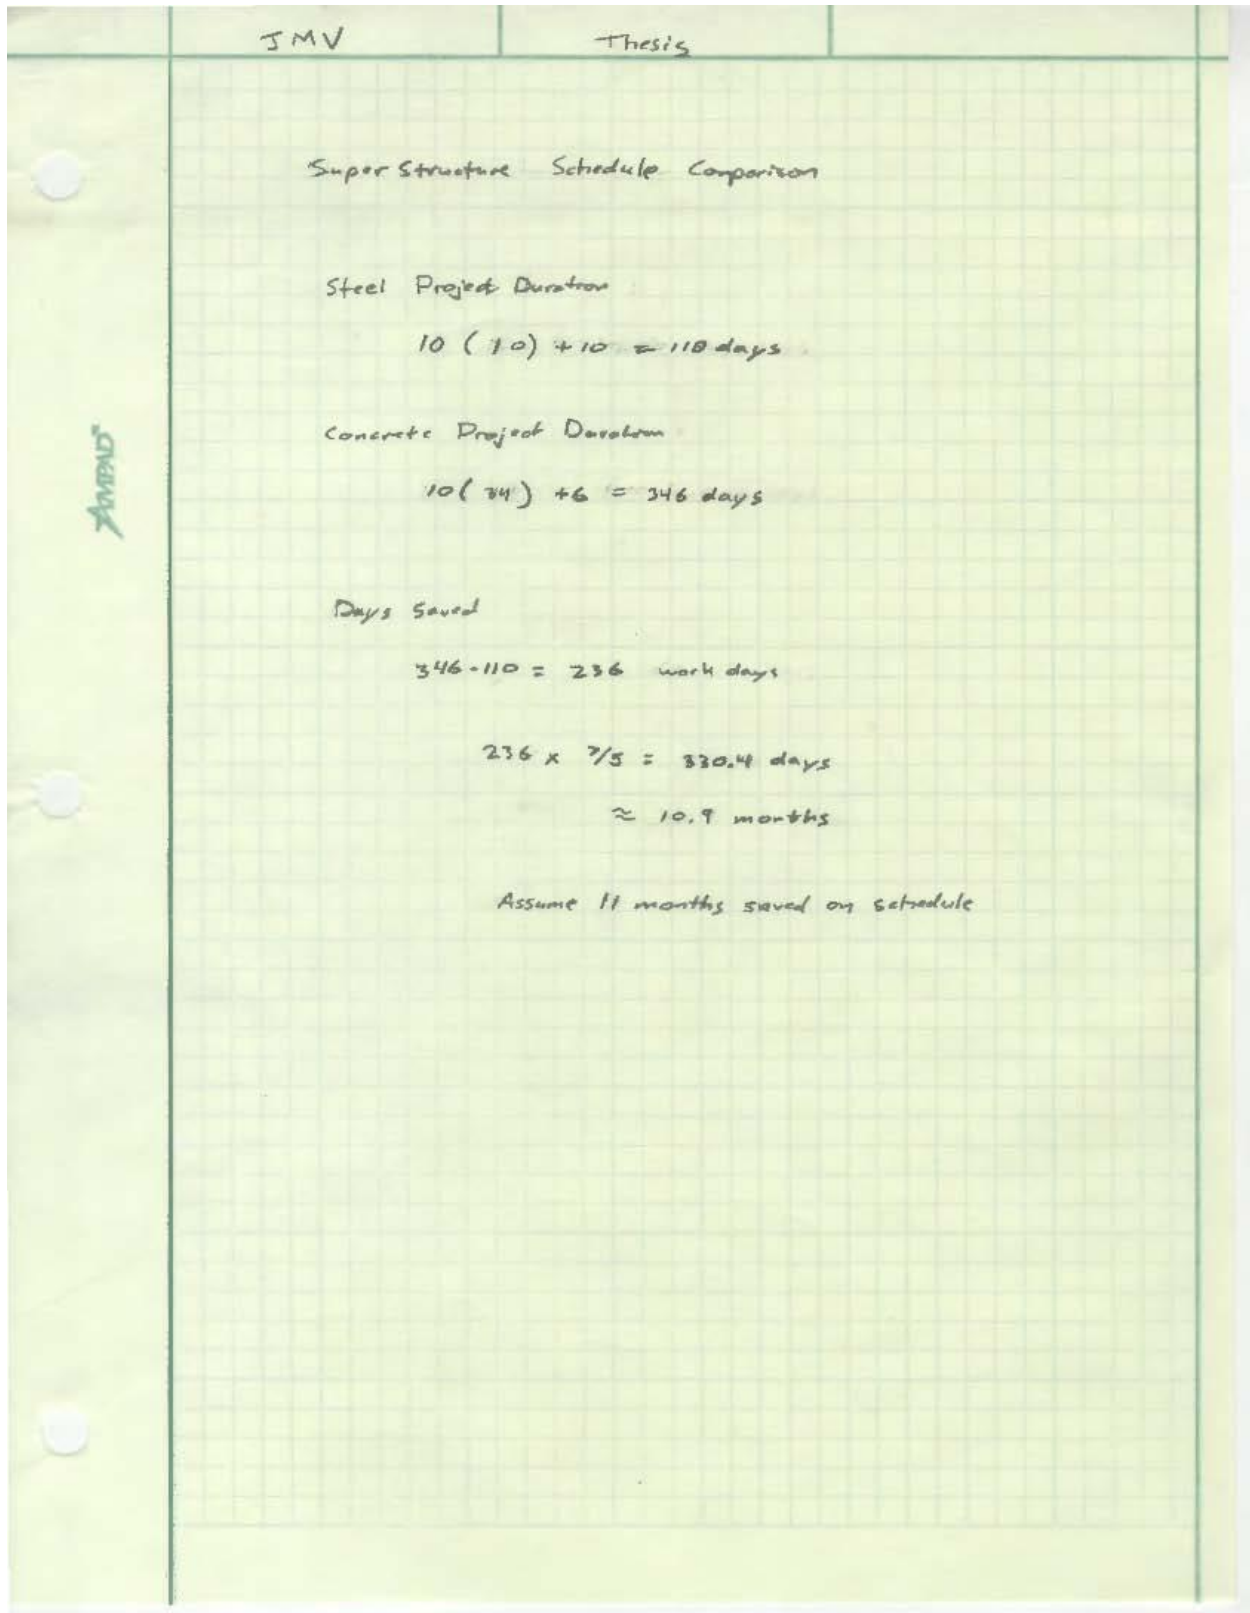 JMV Thesis
Super Structure Schedule Comparison
Steel Project Duration
10 (10) + 10 = 110 days
Concrete Project Duration
10(34) +6 = 346 days
AMPAD™
Days Saved
346-110 = 236 work days
236 x 7/5 = 330.4 days
≈ 10.9 months
Assume 11 months saved on schedule